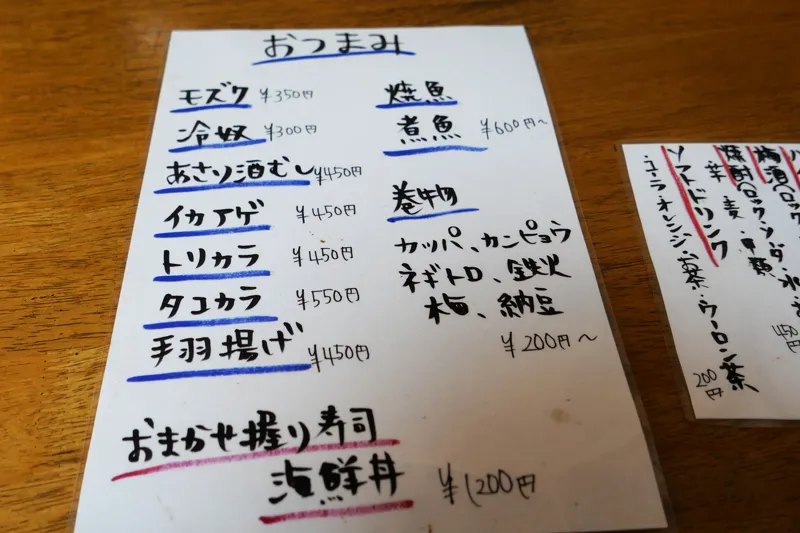 おつまみ
モズク ¥350円
冷奴 ¥300円
あさり酒むし ¥450円
イカアゲ ¥450円
トリカラ ¥450円
タコカラ ¥550円
手羽揚げ ¥450円
焼魚
煮魚 ¥600円~
巻物
カッパ、カンピョウ
ネギトロ、鉄火
梅、納豆
¥200円~
おまかせ握り寿司
海鮮丼 ¥1200円
梅酒(ロック・ソーダ・水
450円
焼酎(ロック
芋 麦
ソフトドリンク
コーラ・オレンジ・お茶・ウーロン茶
200円